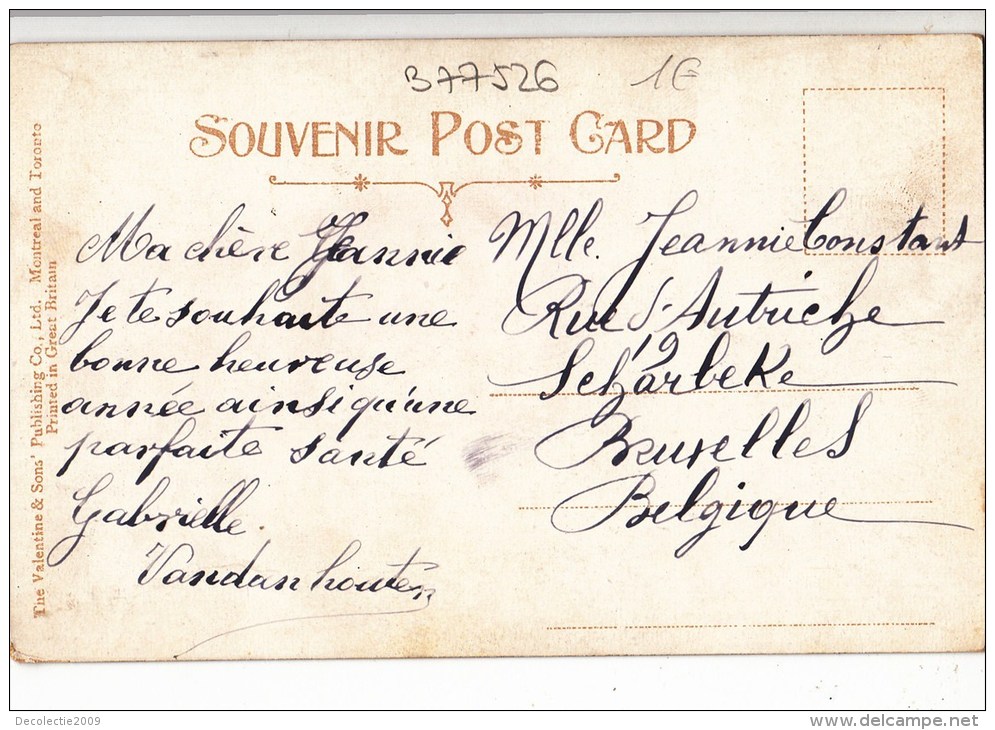 B77526 1€
SOUVENIR POST CARD
The Valentine & Sons' Publishing Co., Ltd. Montreal and Toronto
Printed in Great Britain
Ma chère Jeannie
Je te souhaite une
bonne heureuse
année ainsi qu'une
parfaite santé
Gabrielle.
Vandanhouten
Mlle. Jeannie Constant
Rue d'Autriche
19
Scharbeke
Bruxelles
Belgique
Decolectie2009
www.delcampe.net